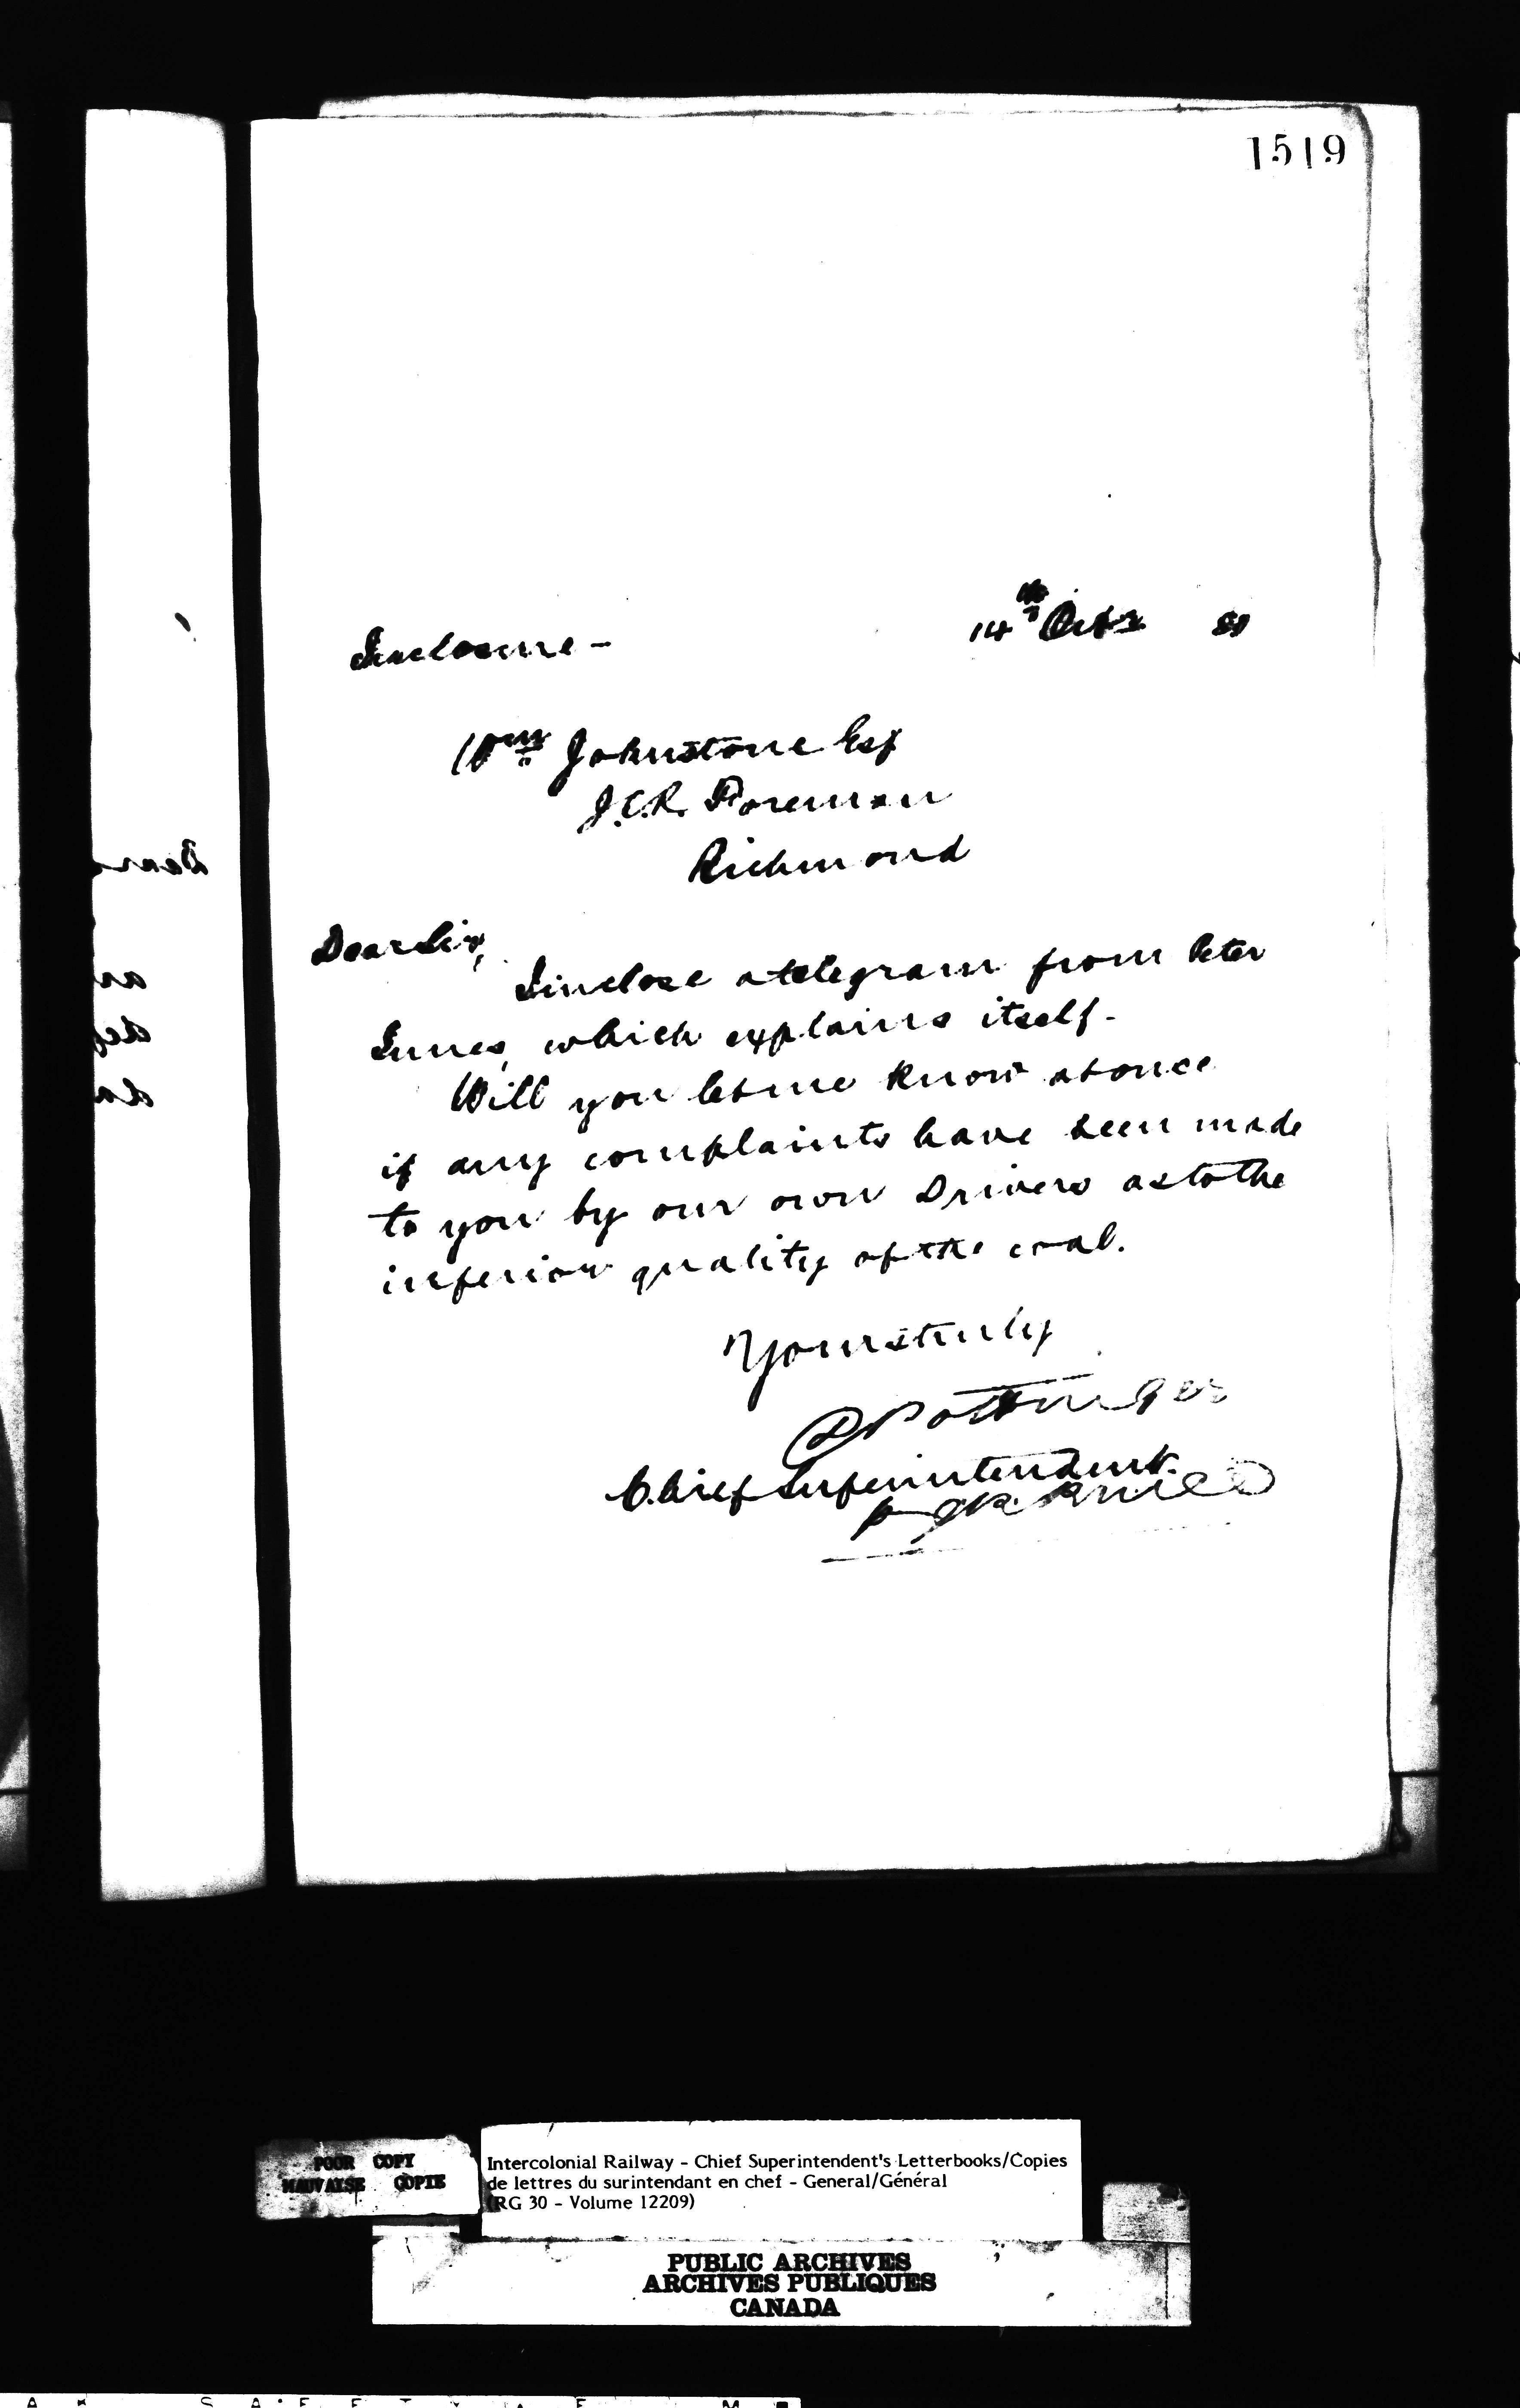 1519
Inclosure -
14th Octr 81
Wm Johnstone Esq
I.C.R. Foreman
Richmond
Dear Sir,
I inclose a telegram from Peter
Innes, which explains itself.
Will you let me know at once
if any complaints have been made
to you by our own Drivers as to the
inferior quality of the coal.
Yours truly
D Pottinger
Chief Superintendent.
POOR COPY
MAUVAISE COPIE
Intercolonial Railway - Chief Superintendent's Letterbooks/Copies
de lettres du surintendant en chef - General/Général
(RG 30 - Volume 12209)
PUBLIC ARCHIVES
ARCHIVES PUBLIQUES
CANADA